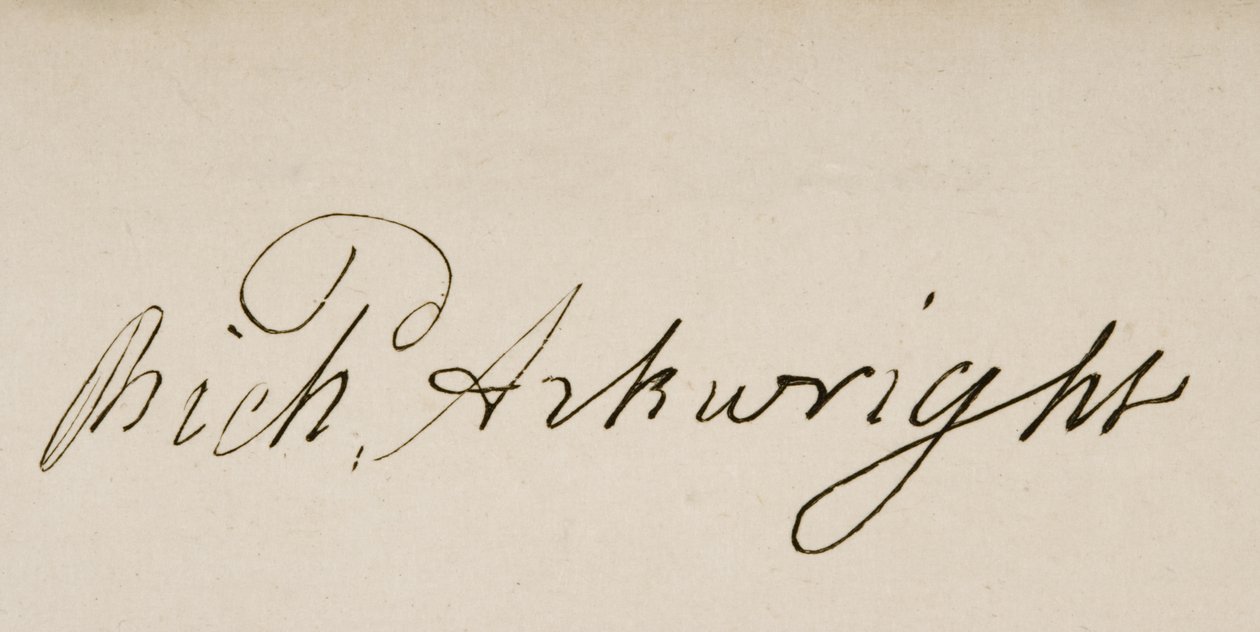 Rich.d Arkwright